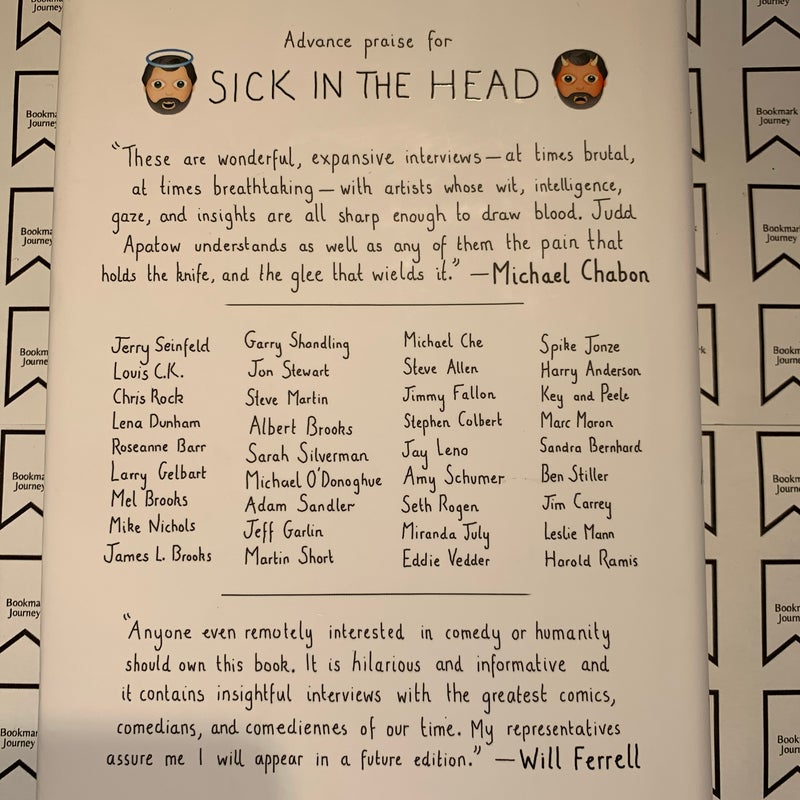 Advance praise for
SICK IN THE HEAD
"These are wonderful, expansive interviews—at times brutal,
at times breathtaking—with artists whose wit, intelligence,
gaze, and insights are all sharp enough to draw blood. Judd
Apatow understands as well as any of them the pain that
holds the knife, and the glee that wields it." —Michael Chabon
Jerry Seinfeld
Louis C.K.
Chris Rock
Lena Dunham
Roseanne Barr
Larry Gelbart
Mel Brooks
Mike Nichols
James L. Brooks
Garry Shandling
Jon Stewart
Steve Martin
Albert Brooks
Sarah Silverman
Michael O'Donoghue
Adam Sandler
Jeff Garlin
Martin Short
Michael Che
Steve Allen
Jimmy Fallon
Stephen Colbert
Jay Leno
Amy Schumer
Seth Rogen
Miranda July
Eddie Vedder
Spike Jonze
Harry Anderson
Key and Peele
Marc Maron
Sandra Bernhard
Ben Stiller
Jim Carrey
Leslie Mann
Harold Ramis
"Anyone even remotely interested in comedy or humanity
should own this book. It is hilarious and informative and
it contains insightful interviews with the greatest comics,
comedians, and comediennes of our time. My representatives
assure me I will appear in a future edition." —Will Ferrell
Bookmark
Journey